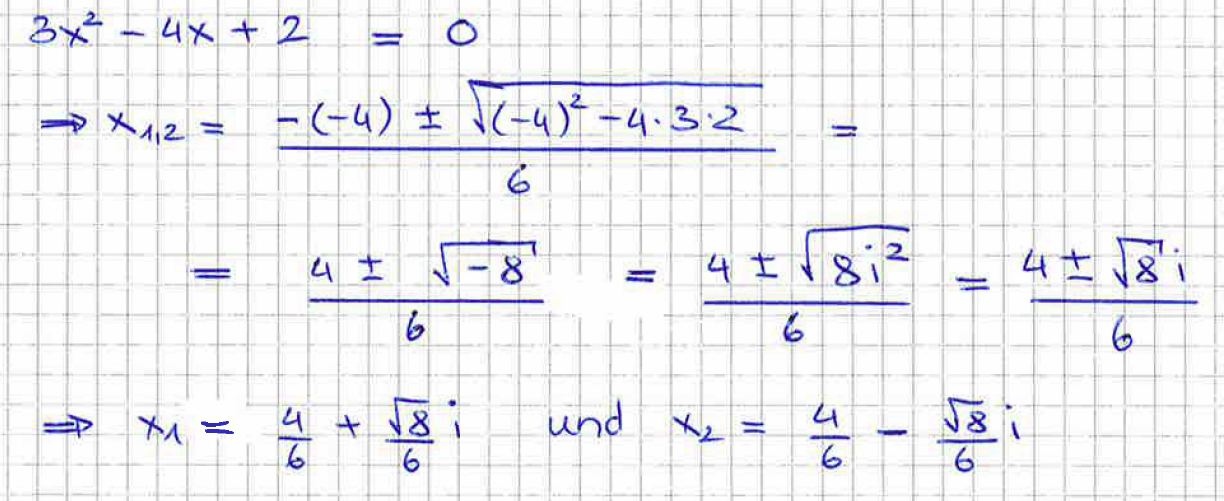 3x² - 4x + 2 = 0
⇒ x₁,₂ = (-(-4) ± √((-4)² - 4·3·2)) / 6 =
= (4 ± √(-8)) / 6 = (4 ± √(8i²)) / 6 = (4 ± √8 i) / 6
⇒ x₁ = 4/6 + √8/6 i und x₂ = 4/6 - √8/6 i